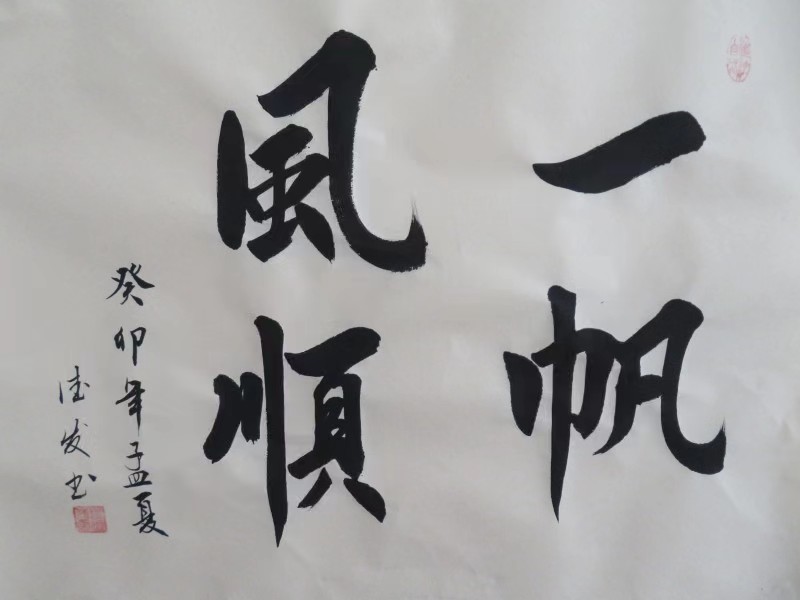 一帆
風順
癸卯年孟夏
德发书